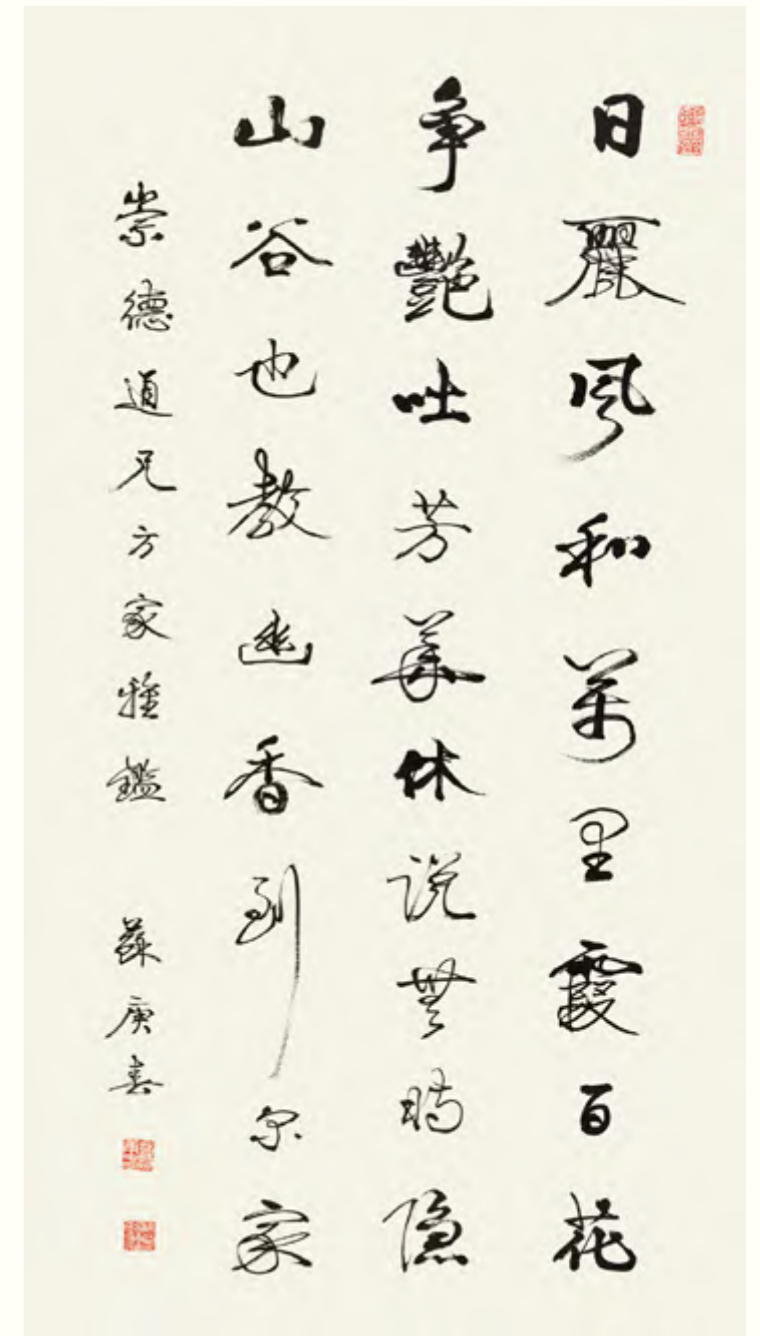 日麗風和萬里霞百花
争艷吐芳華休說無時隐
山谷也教幽香到尔家
崇德道兄方家雅鑑 蘇庚春